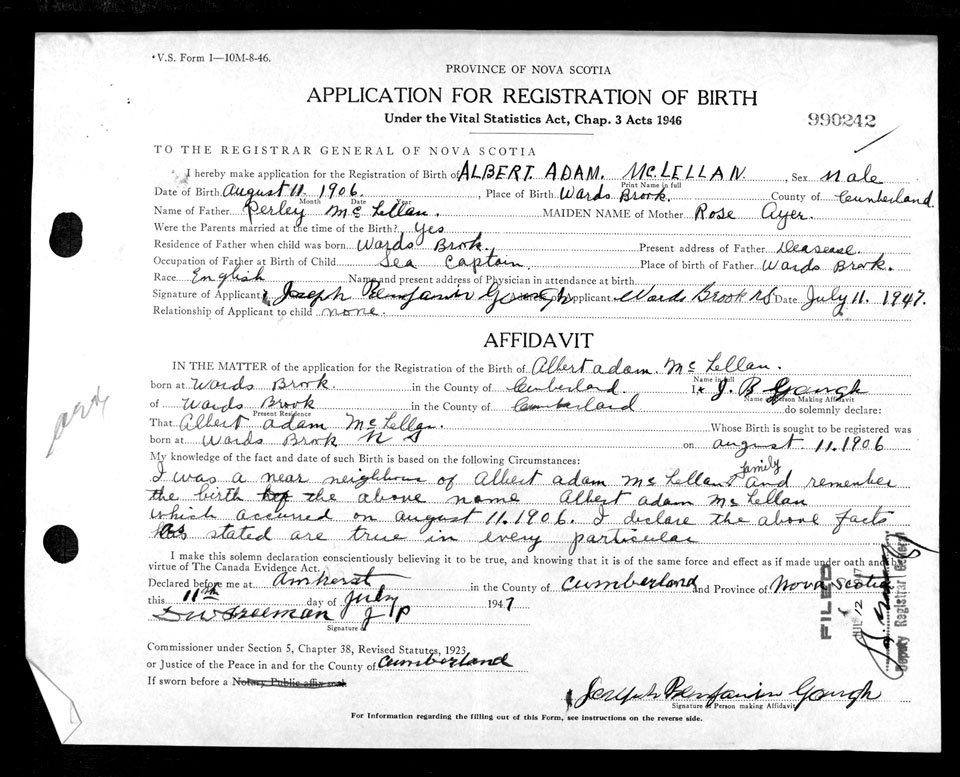 V.S. Form I—10M-8-46.
PROVINCE OF NOVA SCOTIA
APPLICATION FOR REGISTRATION OF BIRTH
Under the Vital Statistics Act, Chap. 3 Acts 1946
990242
TO THE REGISTRAR GENERAL OF NOVA SCOTIA
I hereby make application for the Registration of Birth of ALBERT ADAM. McLELLAN. , Sex male
Print Name in full
Date of Birth August 11. 1906. , Place of Birth Wards Brook. County of Cumberland.
Month Date Year
Name of Father Perley McLellan. MAIDEN NAME of Mother Rose Ayer.
Were the Parents married at the time of the Birth? Yes
Residence of Father when child was born Wards Brook. Present address of Father Deasease.
Occupation of Father at Birth of Child Sea Captain. Place of birth of Father Wards Brook.
Race English Name and present address of Physician in attendance at birth
Signature of Applicant Joseph Benjamin Gough Applicant Wards Brook NS Date July 11. 1947.
Relationship of Applicant to child none.
AFFIDAVIT
IN THE MATTER of the application for the Registration of the Birth of Albert adam. McLellan.
Name in full
born at Wards Brook. in the County of Cumberland. I, J. B Gough
Name of Person Making Affidavit
of Wards Brook in the County of Cumberland do solemnly declare:
Present Residence
That Albert adam McLellan. Whose Birth is sought to be registered was
born at Wards Brook N S on august 11. 1906
My knowledge of the fact and date of such Birth is based on the following Circumstances:
I was a near neighbour of Albert adam McLellan family and remember
the birth of the above name Albert adam McLellan
which accurred on august 11. 1906. I declare the above facts
as stated are true in every particular
I make this solemn declaration conscientiously believing it to be true, and knowing that it is of the same force and effect as if made under oath and by
virtue of The Canada Evidence Act.
Declared before me at Amherst in the County of Cumberland and Province of Nova Scotia
this 11th day of July 1947
D W Freeman J P
Signature
Commissioner under Section 5, Chapter 38, Revised Statutes, 1923,
or Justice of the Peace in and for the County of Cumberland
If sworn before a Notary Public affix seal
Joseph Benjamin Gough
Signature of Person making Affidavit
For Information regarding the filling out of this Form, see instructions on the reverse side.
FILED
JUL 12 1947
Deputy Registrar General